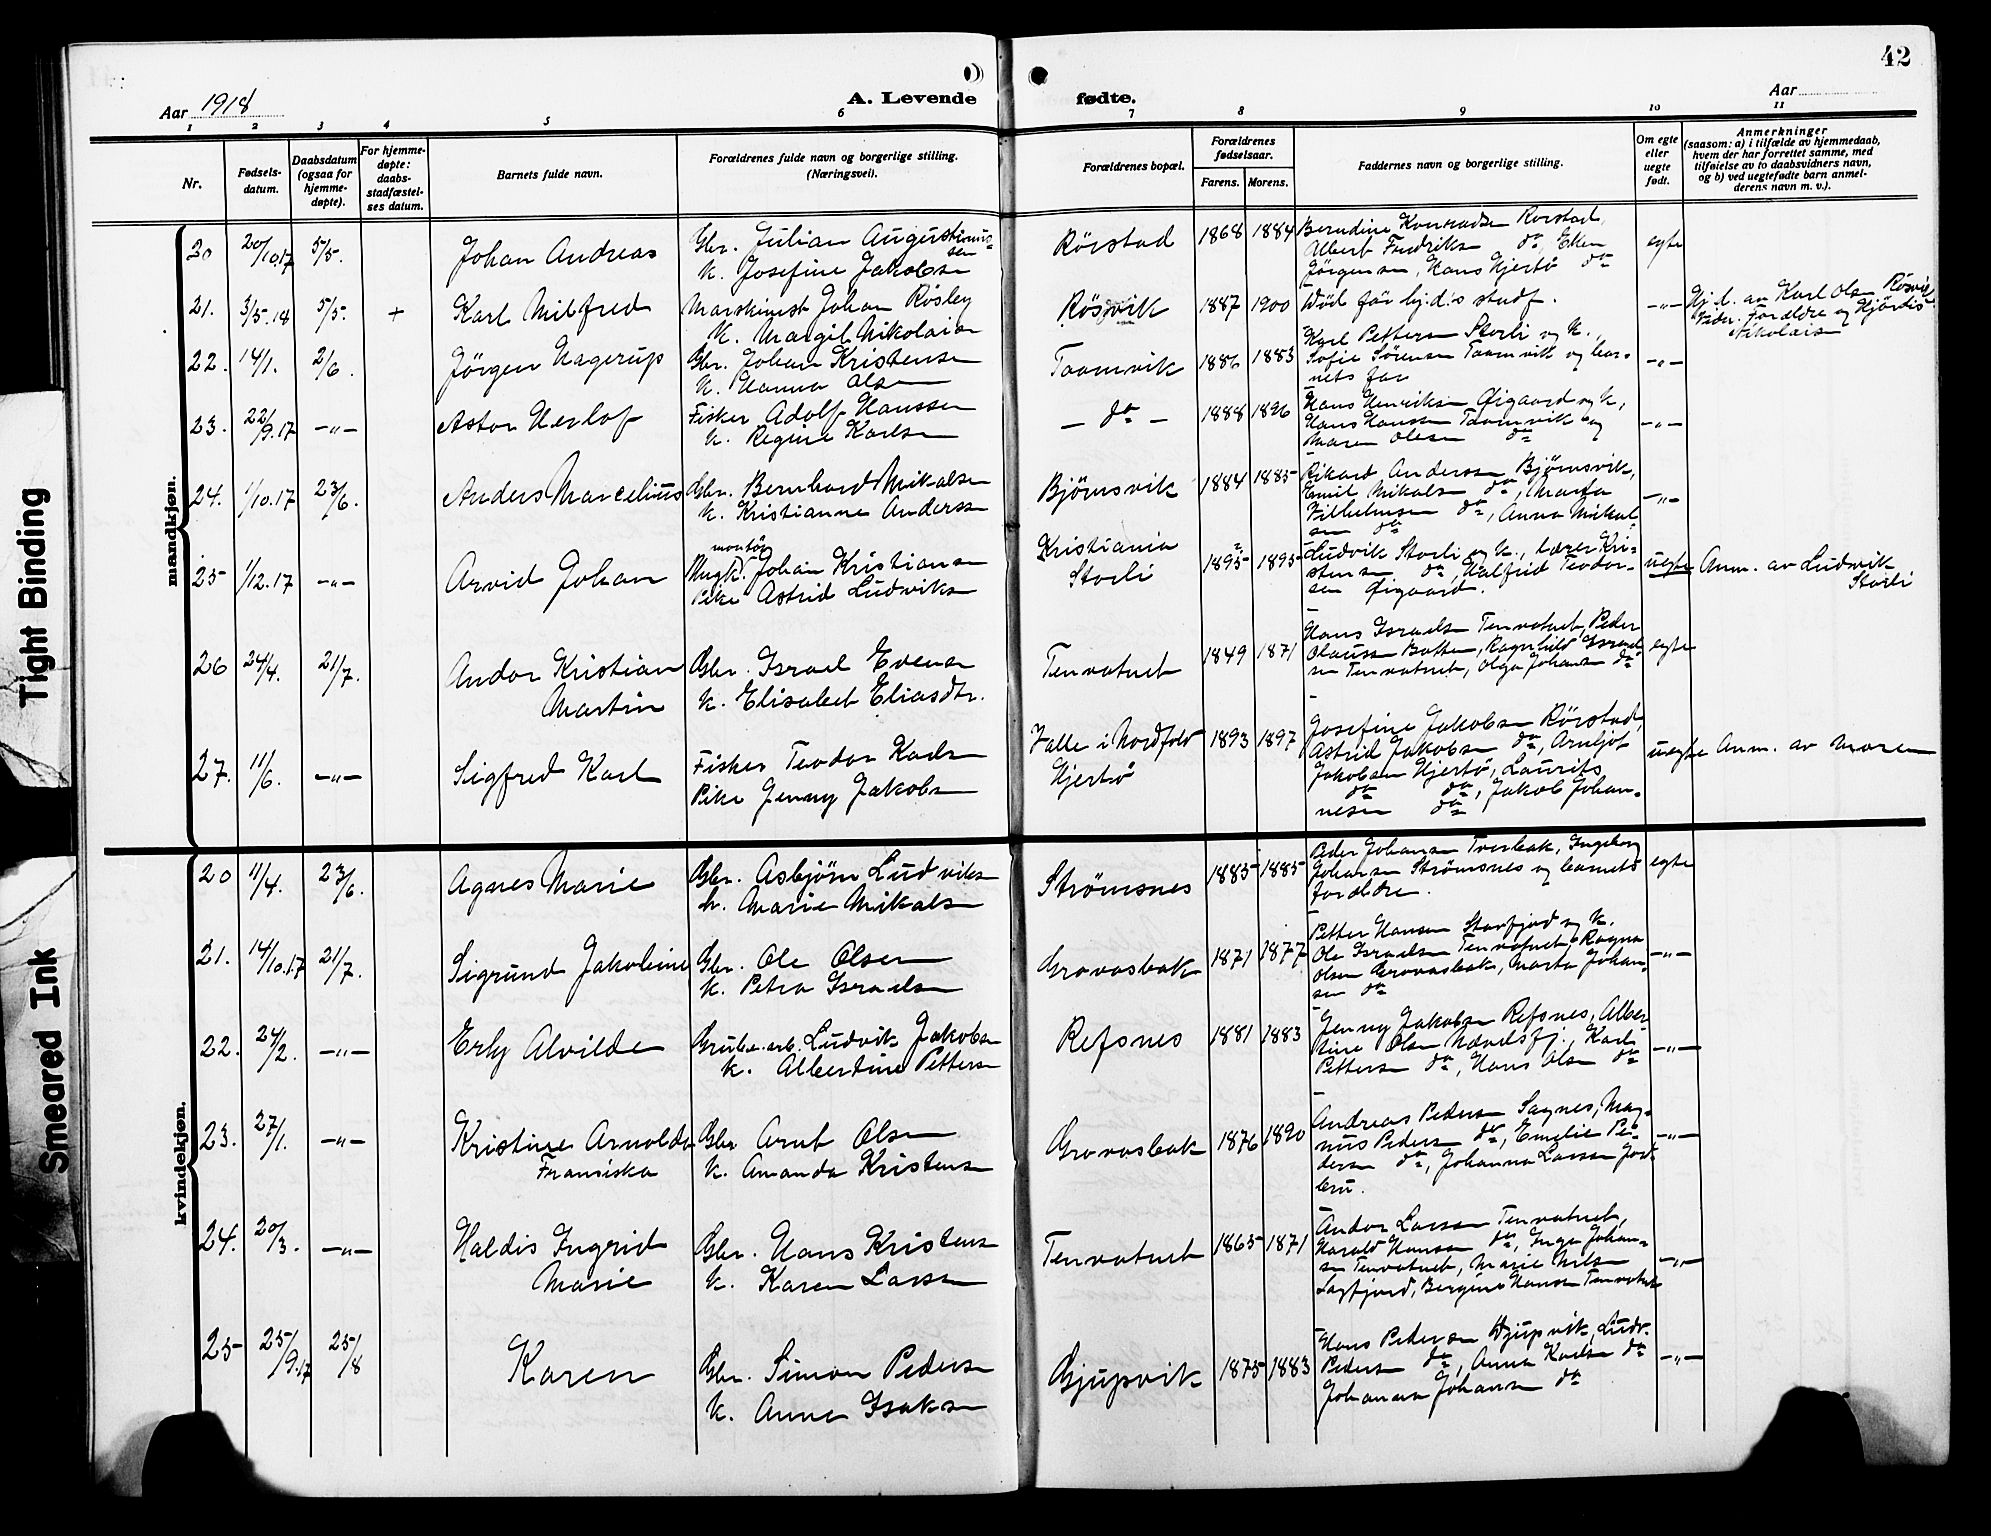 42
Aar 1918
A. Levende fødte.
Aar
1 2 3 4 5 6 7 8 9 10 11
Nr.
Fødsels-
datum.
Daabsdatum
(ogsaa for
hjemme-
døpte).
For hjemme-
døpte:
daabs-
stadfæstel-
ses datum.
Barnets fulde navn.
Forældrenes fulde navn og borgerlige stilling.
(Næringsvei).
Forældrenes bopæl.
Forældrenes
fødselsaar.
Farens. Morens.
Faddernes navn og borgerlige stilling.
Om egte
eller
uegte
født.
Anmerkninger
(saasom: a) i tilfælde av hjemmedaab,
hvem der har forrettet samme, med
tilføielse av to daabsvidners navn,
og b) ved uegtefødte barn anmel-
derens navn m. v.).
mandkjøn.
20 20/10.17 5/5. Johan Andreas
Gbr. Julian Augustinus-
sen
k. Josefine Jakobsen
Rörstad 1868 1884
Berndine Konradsen Rörstad,
Albert Fredriksen do, Eken
Jörgensen, Hans Hjertö do
egte
21. 3/5.18 5/5. + Karl Milfred
Maskinist Johan Rösby
k. Margit Nikolaisen
Rösvik 1887 1900
Död för hj.d.s stadf.
-"-
Hj.d. av Karl Olsen Rösvik
Vidn. Foreldre og Hjördis
Nikolaisen
22. 14/1. 2/6. Jörgen Hagerup
Gbr. Johan Kristensen
k. Hanna Olsen
Taamvik 1886 1883
Karl Pettersen Storli og k.,
Sofie Sörensen Taamvik og bar-
nets far
-"-
23. 22/9.17 -"- Astor Herlof
Fisker Adolf Hanssen
k. Regine Karlsen
- do - 1888 1896
Hans Henriksen Öigaard og k,
Hans Hansen Taamvik og
Maren Olesen do
-"-
24. 1/10.17 23/6. Anders Marcelius
Gbr. Bernhard Mikalsen
k. Kristianne Anderssen
Björnsvik 1884 1885
Rikard Anderssen Björnsvik,
Emil Mikalsen do, Marta
Vilhelmsen do, Anna Mikal-
sen do
-"-
25 1/12.17 -"- Arvid Johan
montör
Ungk. Johan Kristiansen
Pike Astrid Ludviksen
Kristiania
Storli
1895 1895
Ludvik Storli og k., lærer Kri-
stensen do, Halfrid Teodor-
sen Öigaard.
uegte
Anm. av Ludvik
Storli
26 24/4. 21/7. Andor Kristian
Martin
Gbr. Israel Evensen
k. Elisabet Eliasdtr.
Tenvatnet 1849 1871
Hans Israelsen Tenvatnet, Peder
Olaussen Botten, Ragnhild Israel-
sen Tenvatnet, Olga Johansen do
egte
27. 11/6. -"- Sigfred Karl
Fisker Teodor Karlsen
Pike Jenny Jakobsen
Valle i Nordfold
Hjertö
1893 1897
Josefine Jakobsen Rörstad,
Astrid Jakobsen do, Arnljot
Jakobsen Hjertö, Laurits
do do, Jakob Johan-
nesen do
uegte
Anm. av moren
kvindekjøn.
20 11/4. 23/6. Agnes Marie
Gbr. Asbjörn Ludviksen
k. Marie Mikalsen
Strömsnes 1885 1885
Peder Johansen Tverbak, Ingeborg
Johansen Strömsnes og barnets
foreldre.
egte
21. 14/10.17 21/7. Sigrund Jakobine
Gbr. Ole Olsen
k. Petra Israelsen
Grovasbak 1871 1877
Petter Hansen Storfjord og k.
Ole Israelsen Tenvatnet, Ragna
Olsen Grovasbak, Marta Johan-
sen do
-"-
22. 24/2. -"- Erly Alvilde
Grube-arb. Ludvik Jakobsen
k. Albertine Pettersen
Refsnes 1881 1883
Jenny Jakobsen Refsnes, Alber-
tine Olsen Nævelsfj., Karl
Pettersen do, Hans Olsen do
-"-
23. 27/1. -"- Kristine Arnolda
Fransiska
Gbr Arnt Olsen
k. Amanda Kristensen
Grovasbak 1876 1890
Andreas Pedersen Sagnes, Mag-
nus Pedersen do, Emelie Pe-
dersen do, Johanna Larsen Jord-
bru.
-"-
24. 20/3. -"- Haldis Ingrid
Marie
Gbr. Hans Kristensen
k. Karen Larsen
Tenvatnet 1865 1871
Andor Larsen Tenvatnet,
Harald Hansen do, Inga Johan-
sen Tenvatnet, Marie Nilsen
Lagfjord, Bergine Hansen Tenvatnet
-"-
25 25/9.17 25/8 Karen
Gbr. Simon Pedersen
k. Anne Isaksen
Gjupvik 1875 1883
Hans Pedersen Gjupvik, Ludv.
Pedersen do, Anna Karlsen do
Johanna Johansen do
-"-
Tight Binding
Smeared Ink